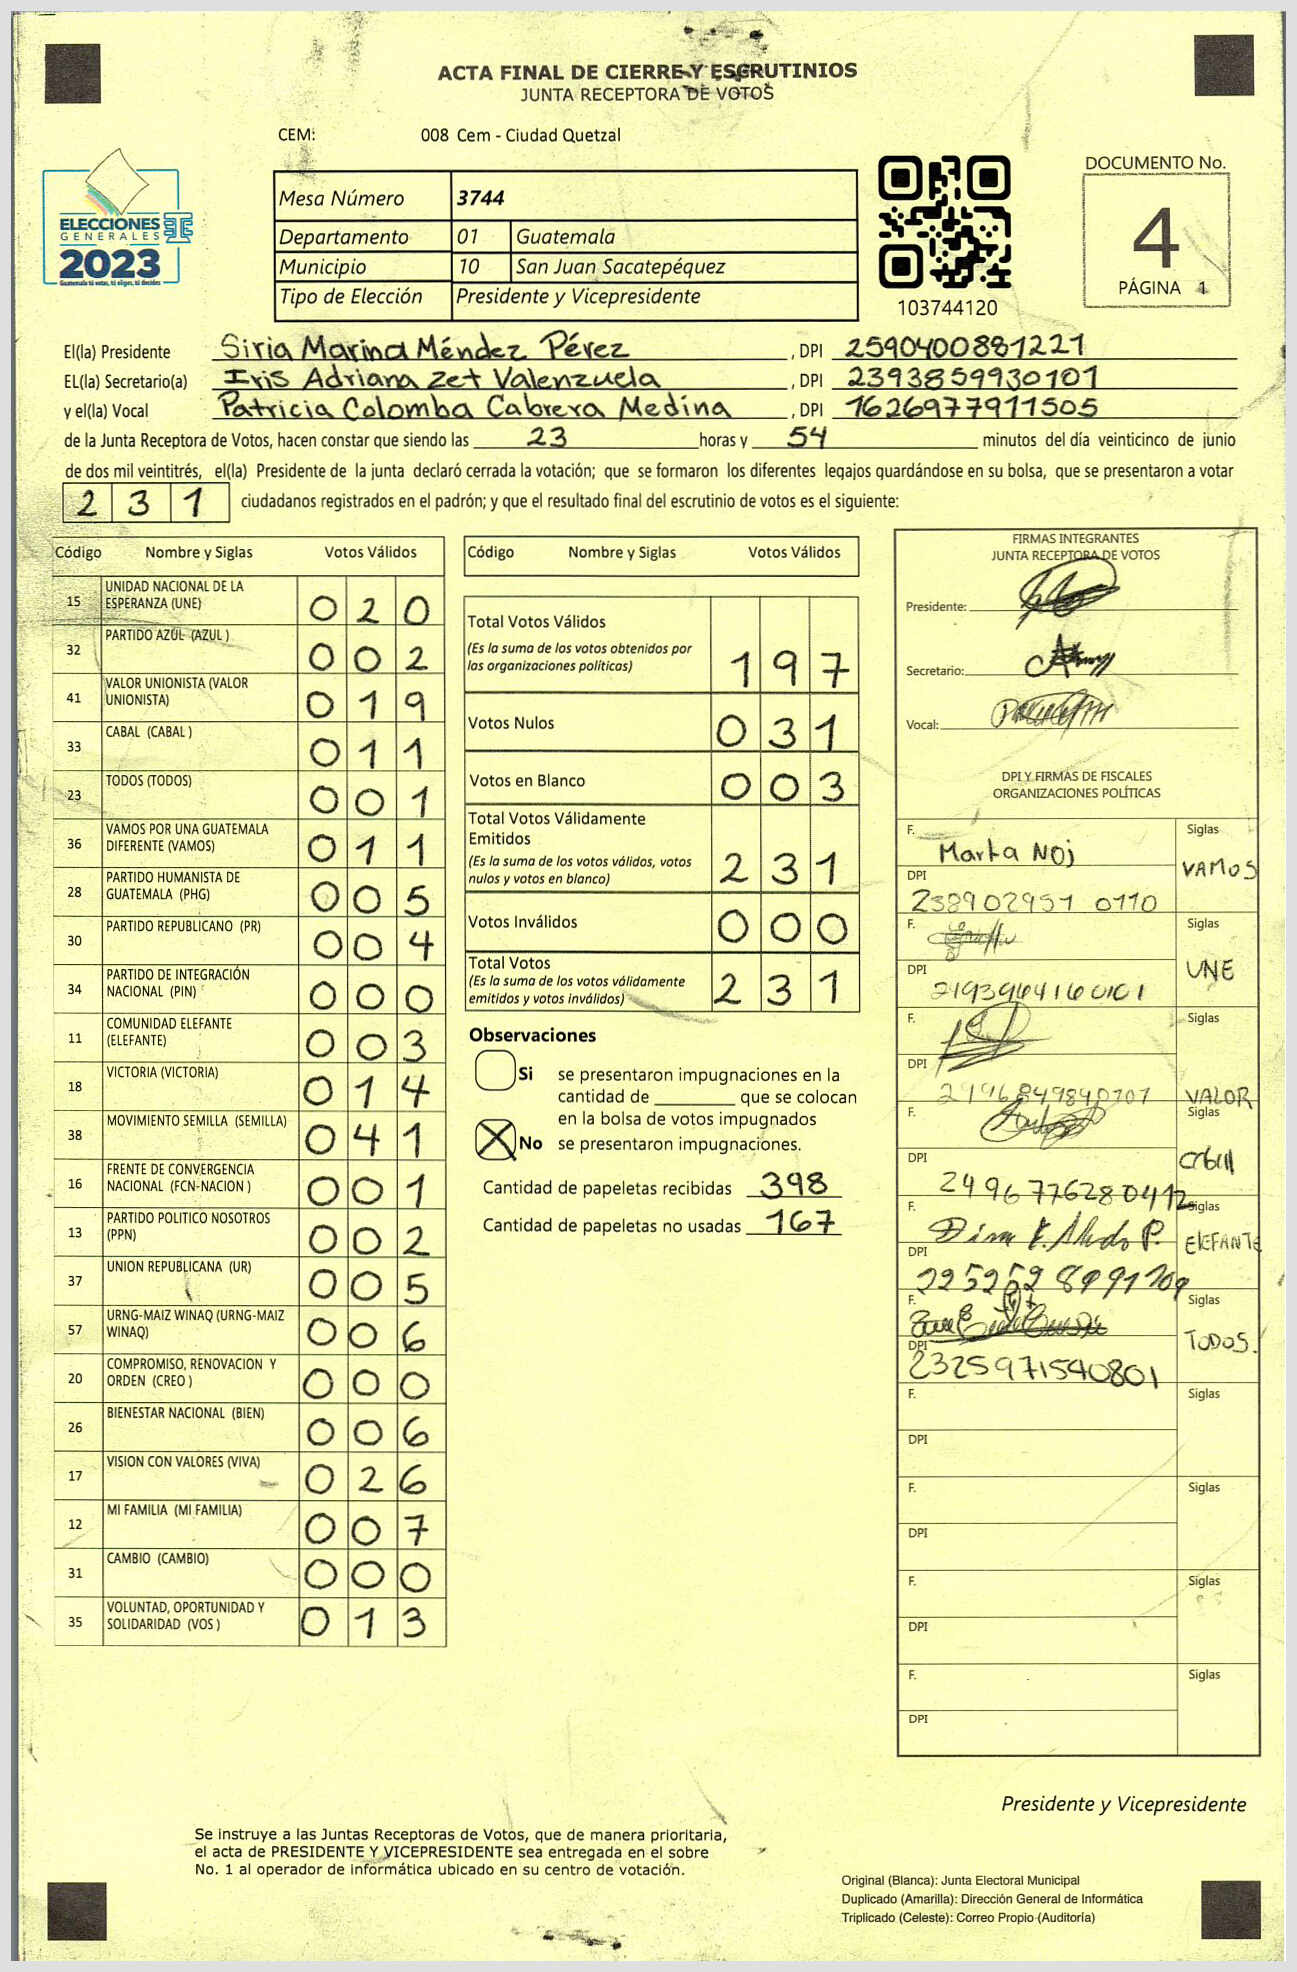 ACTA FINAL DE CIERRE Y ESCRUTINIOS
JUNTA RECEPTORA DE VOTOS
CEM: 008 Cem - Ciudad Quetzal
ELECCIONES
GENERALES
2023
Guatemala tú votas, tú eliges, tú decides
Mesa Número 3744
Departamento 01 Guatemala
Municipio 10 San Juan Sacatepéquez
Tipo de Elección Presidente y Vicepresidente
103744120
DOCUMENTO No.
4
PÁGINA 1
El(la) Presidente Siria Marina Méndez Pérez , DPI 2590400881221
EL(la) Secretario(a) Iris Adriana Zet Valenzuela , DPI 2393859930101
y el(la) Vocal Patricia Colomba Cabrera Medina , DPI 1626977911505
de la Junta Receptora de Votos, hacen constar que siendo las 23 horas y 54 minutos del día veinticinco de junio
de dos mil veintitrés, el(la) Presidente de la junta declaró cerrada la votación; que se formaron los diferentes legajos guardándose en su bolsa, que se presentaron a votar
231 ciudadanos registrados en el padrón; y que el resultado final del escrutinio de votos es el siguiente:
Código Nombre y Siglas Votos Válidos
15 UNIDAD NACIONAL DE LA ESPERANZA (UNE) 020
32 PARTIDO AZUL (AZUL ) 002
41 VALOR UNIONISTA (VALOR UNIONISTA) 019
33 CABAL (CABAL ) 011
23 TODOS (TODOS) 001
36 VAMOS POR UNA GUATEMALA DIFERENTE (VAMOS) 011
28 PARTIDO HUMANISTA DE GUATEMALA (PHG) 005
30 PARTIDO REPUBLICANO (PR) 004
34 PARTIDO DE INTEGRACIÓN NACIONAL (PIN) 000
11 COMUNIDAD ELEFANTE (ELEFANTE) 003
18 VICTORIA (VICTORIA) 014
38 MOVIMIENTO SEMILLA (SEMILLA) 041
16 FRENTE DE CONVERGENCIA NACIONAL (FCN-NACION ) 001
13 PARTIDO POLITICO NOSOTROS (PPN) 002
37 UNION REPUBLICANA (UR) 005
57 URNG-MAIZ WINAQ (URNG-MAIZ WINAQ) 006
20 COMPROMISO, RENOVACION Y ORDEN (CREO ) 000
26 BIENESTAR NACIONAL (BIEN) 006
17 VISION CON VALORES (VIVA) 026
12 MI FAMILIA (MI FAMILIA) 007
31 CAMBIO (CAMBIO) 000
35 VOLUNTAD, OPORTUNIDAD Y SOLIDARIDAD (VOS ) 013
Código Nombre y Siglas Votos Válidos
Total Votos Válidos 197
(Es la suma de los votos obtenidos por
las organizaciones políticas)
Votos Nulos 031
Votos en Blanco 003
Total Votos Válidamente
Emitidos 231
(Es la suma de los votos válidos, votos
nulos y votos en blanco)
Votos Inválidos 000
Total Votos 231
(Es la suma de los votos válidamente
emitidos y votos inválidos)
Observaciones
Si se presentaron impugnaciones en la
cantidad de ________ que se colocan
en la bolsa de votos impugnados
X No se presentaron impugnaciones.
Cantidad de papeletas recibidas 398
Cantidad de papeletas no usadas 167
FIRMAS INTEGRANTES
JUNTA RECEPTORA DE VOTOS
Presidente:
Secretario:
Vocal:
DPI Y FIRMAS DE FISCALES
ORGANIZACIONES POLÍTICAS
F. Marta Noj Siglas
DPI VAMOS
238902951 0110
F. Siglas
DPI UNE
2193964160101
F. Siglas
DPI VALOR
F. Siglas
DPI
2496776280412
F. Siglas
DPI ELEFANTE
F. Siglas
DPI TODOS.
2325971540801
F. Siglas
DPI
F. Siglas
DPI
F. Siglas
DPI
F. Siglas
DPI
Presidente y Vicepresidente
Se instruye a las Juntas Receptoras de Votos, que de manera prioritaria,
el acta de PRESIDENTE Y VICEPRESIDENTE sea entregada en el sobre
No. 1 al operador de informática ubicado en su centro de votación.
Original (Blanca): Junta Electoral Municipal
Duplicado (Amarilla): Dirección General de Informática
Triplicado (Celeste): Correo Propio (Auditoría)